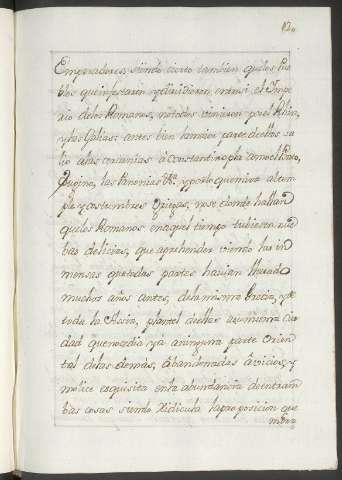 Emperadores, siendo cierto tambien que los Pue
blos que infestaron y dividieron entre si el Impe
rio de los Romanos, no todos vinieron por el Rhin,
y las Galias: antes bien la mejor parte de ellos sa
lio a las cercanias de Constantinopla como el Ponto,
las Panonias &.ª y por lo que mira al tem
plo y costumbres Griegas, no se donde hallan
que los Romanos en aquel tiempo tubieron nue
bas delicias, que aprehender siendo las in
mensas que todas partes havian llevado
muchos años antes, de la misma Grecia, y de
toda la Assia, plantel de ellas a una misma Ciu
dad que no cedia ya a ninguna parte Orien
tal de las demás, abandonadas a vicios, y
molice exquisita en la abundancia de entram
bas cosas siendo ridicula la proposicion que